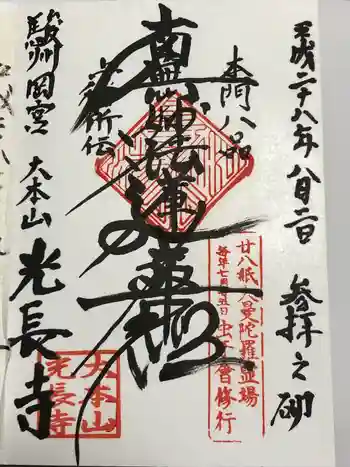 平成二十八年八月二日
参拝之砌
本門八品
上行所伝
南無妙法蓮華経
廿八紙大曼陀羅霊場
毎年七月五日虫干會修行
駿州岡宮
大本山
光長寺
大本山
光長寺